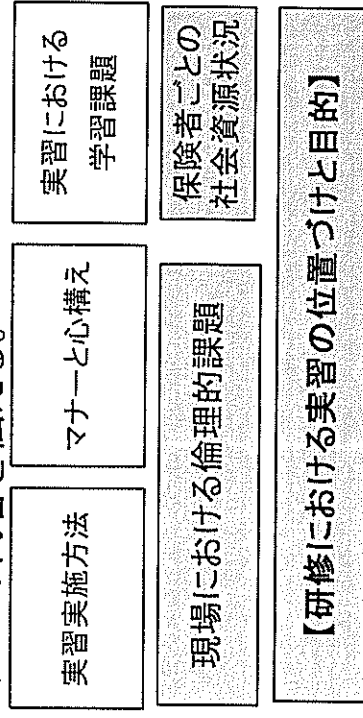 を伝える。
実習実施方法
マナーと心構え
実習における
学習課題
現場における倫理的課題
保険者ごとの
社会資源状況
【研修における実習の位置づけと目的】